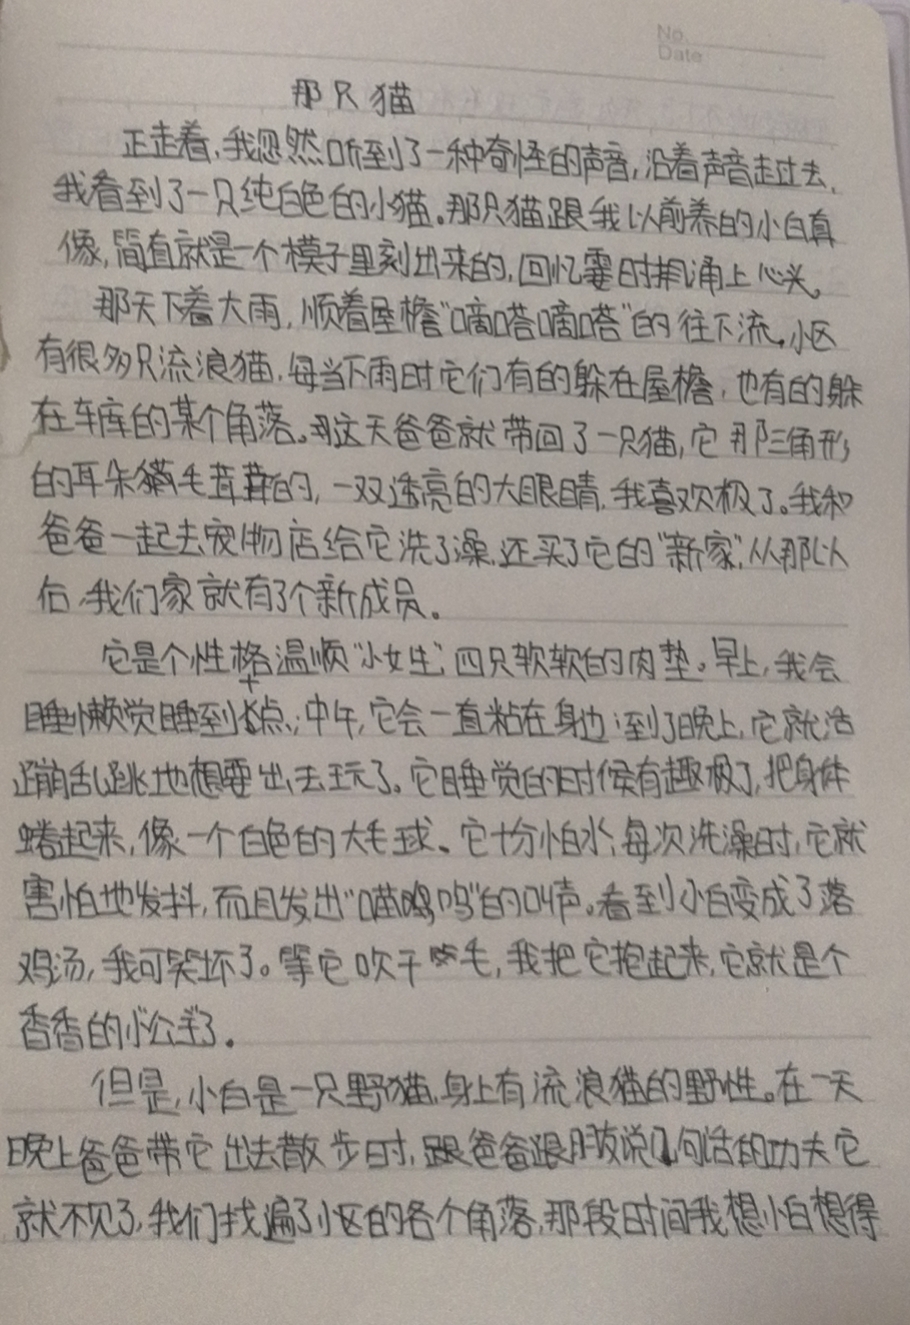 No.
Date
那只猫
正走着,我忽然听到了一种奇怪的声音,沿着声音走过去,
我看到了一只纯白色的小猫。那只猫跟我以前养的小白真
像,简直就是一个模子里刻出来的,回忆霎时拥涌上心头。
那天下着大雨,顺着屋檐“嘀嗒嘀嗒”的往下流。小区
有很多只流浪猫,每当下雨时它们有的躲在屋檐,也有的躲
在车库的某个角落。这天爸爸就带回了一只猫,它那三角形
的耳朵毛茸茸的,一双透亮的大眼睛,我喜欢极了。我和
爸爸一起去宠物店给它洗了澡,还买了它的“新家”,从那以
后,我们家就有了个新成员。
它是个性格温顺“小女生”,四只软软的肉垫。早上,我会
睡懒觉睡到十点;中午,它会一直粘在身边;到了晚上,它就活
蹦乱跳地想要出去玩了。它睡觉的时候有趣极了,把身体
蜷起来,像一个白色的大毛球。它十分怕水,每次洗澡时,它就
害怕地发抖,而且发出“喵呜呜”的叫声。看到小白变成了落
鸡汤,我可笑坏了。等它吹干毛,我把它抱起来,它就是个
香香的小公主了。
但是,小白是一只野猫,身上有流浪猫的野性。在一天
晚上爸爸带它出去散步时,跟爸爸跟朋友说几句话的功夫它
就不见了,我们找遍了小区的各个角落,那段时间我想小白想得